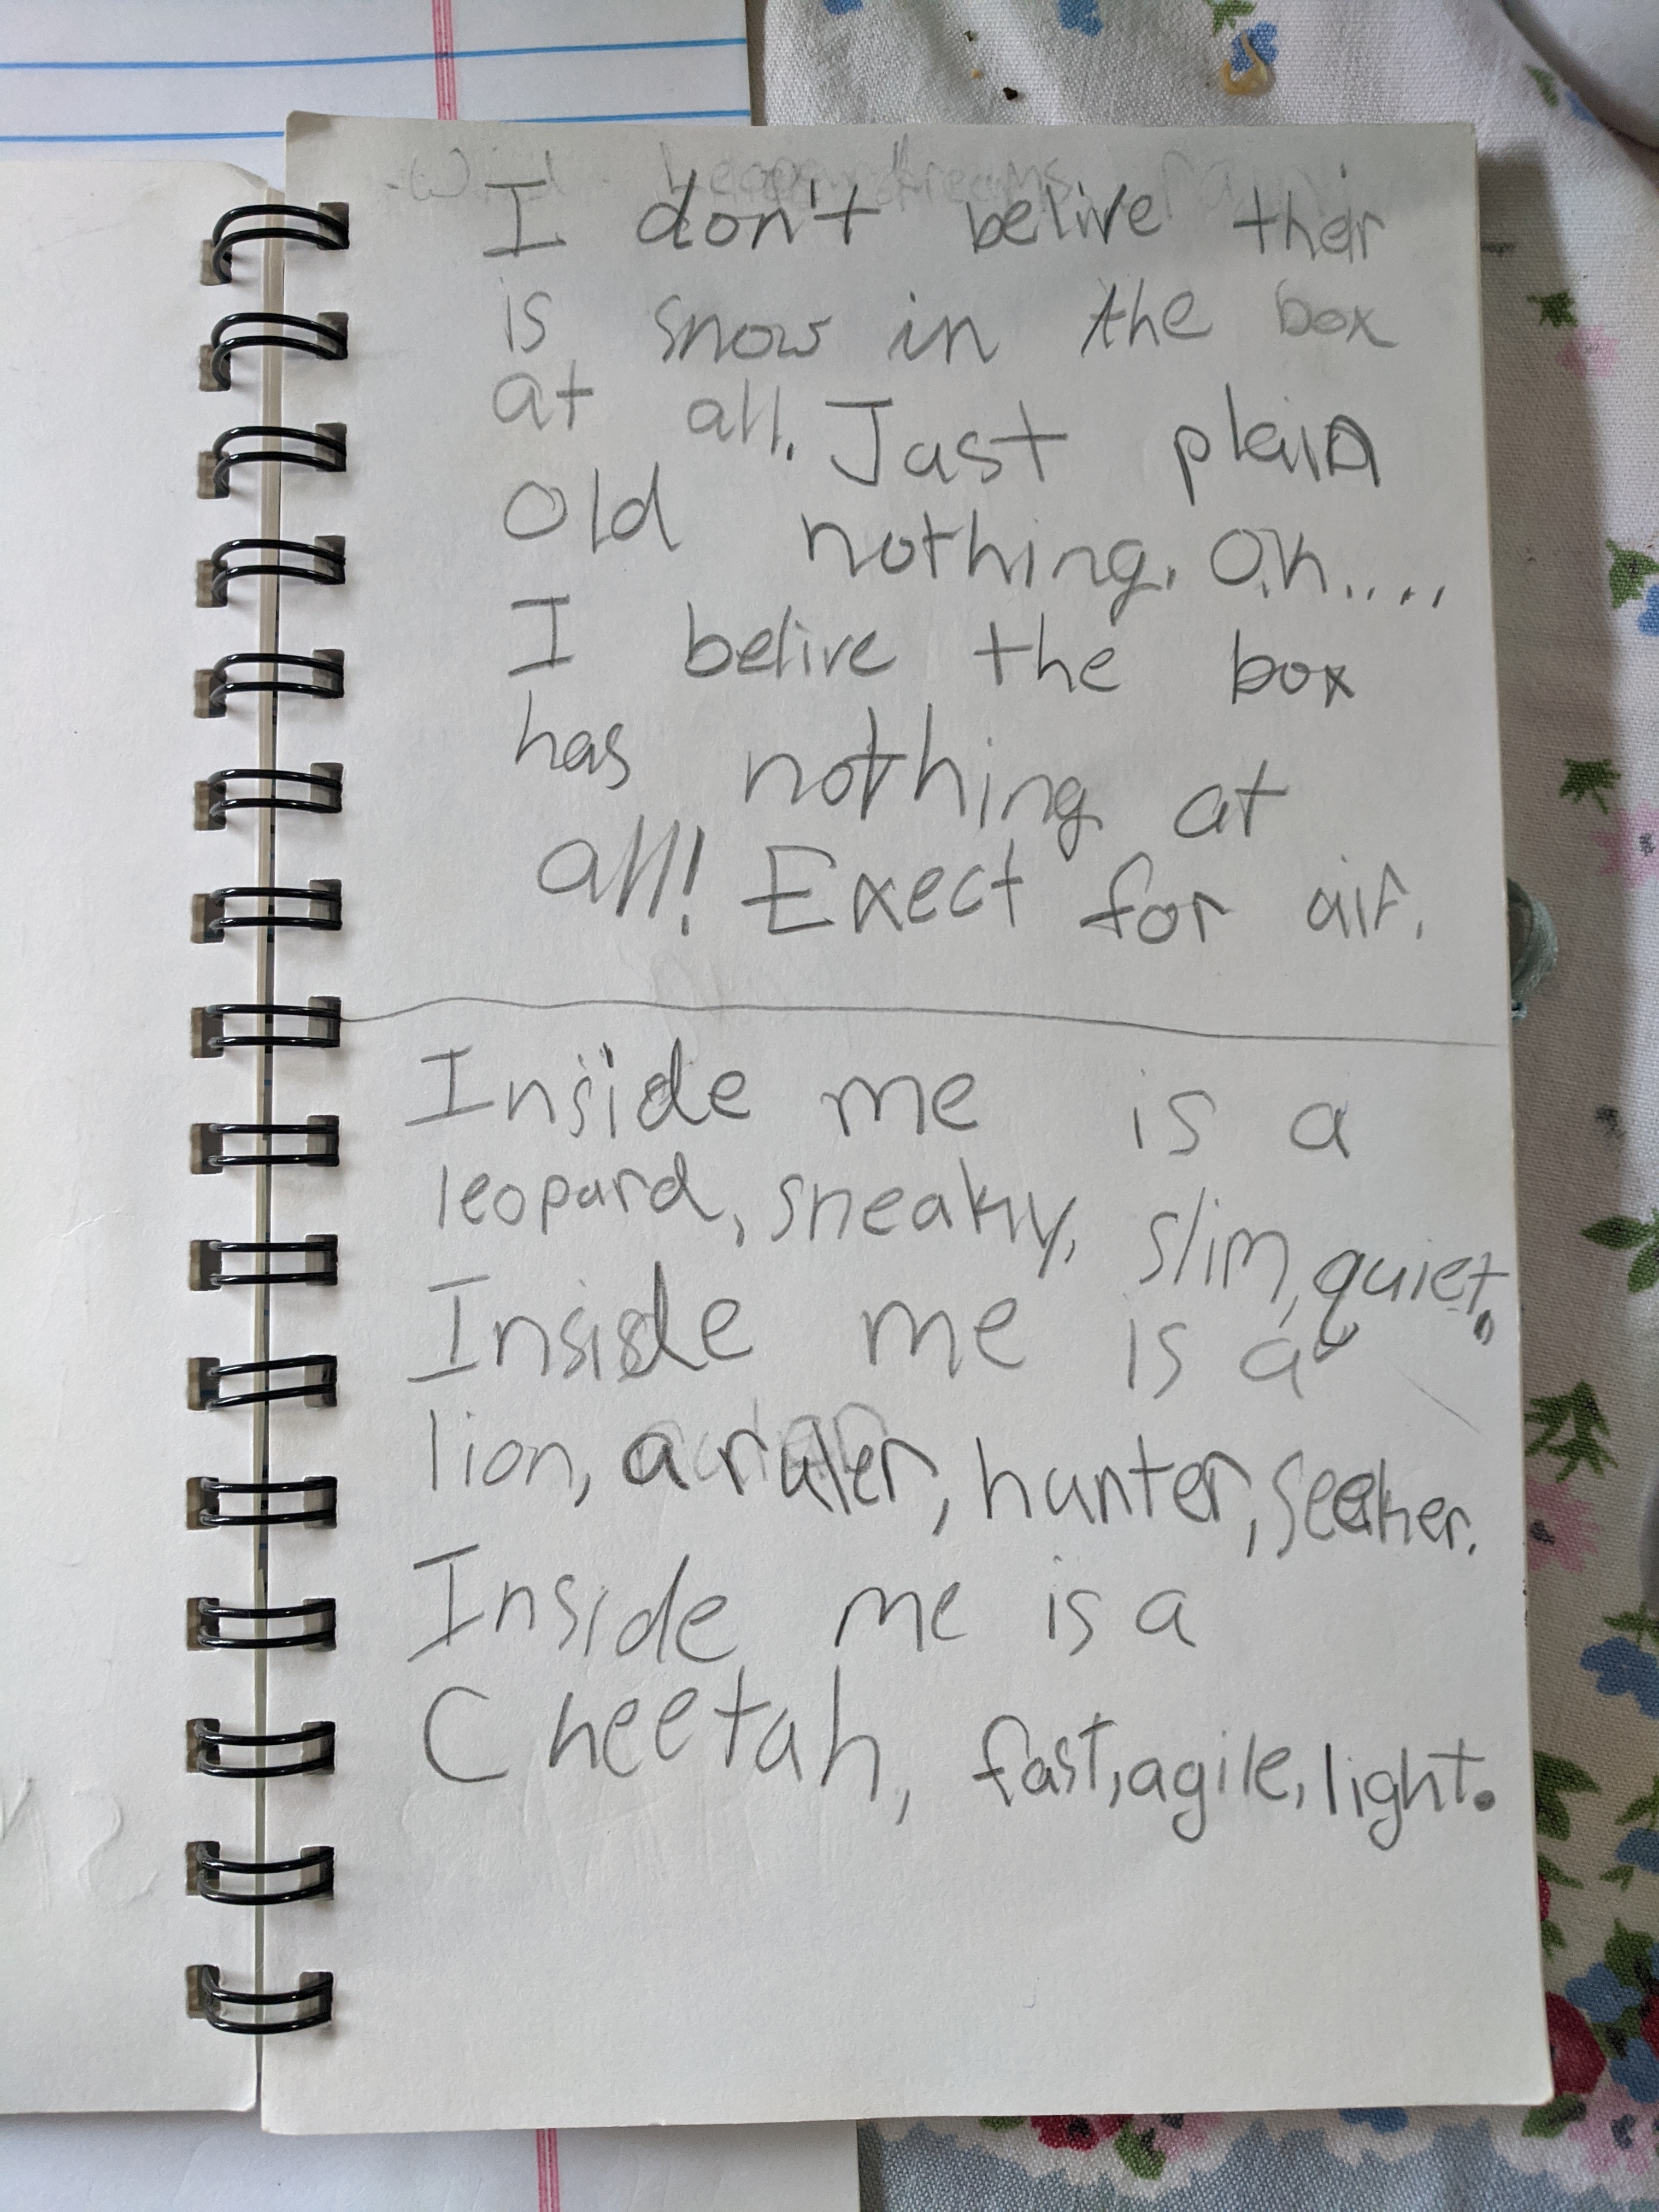 I don't belive ther
is snow in the box
at all. Just plain
old nothing. O.k....
I belive the box
has nothing at
all! Exect for air.
Inside me is a
leopard, sneaky, slim, quiet.
Inside me is a
lion, a ruler, hunter, seeker.
Inside me is a
Cheetah, fast, agile, light.